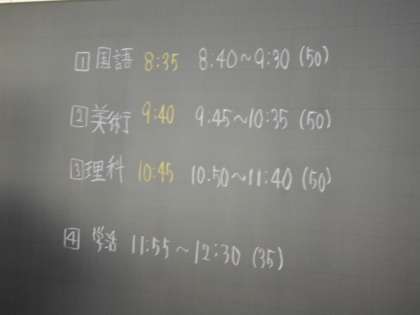 1 国語 8:35 8:40~9:30 (50)
2 美術 9:40 9:45~10:35 (50)
3 理科 10:45 10:50~11:40 (50)
4 学活 11:55~12:30 (35)